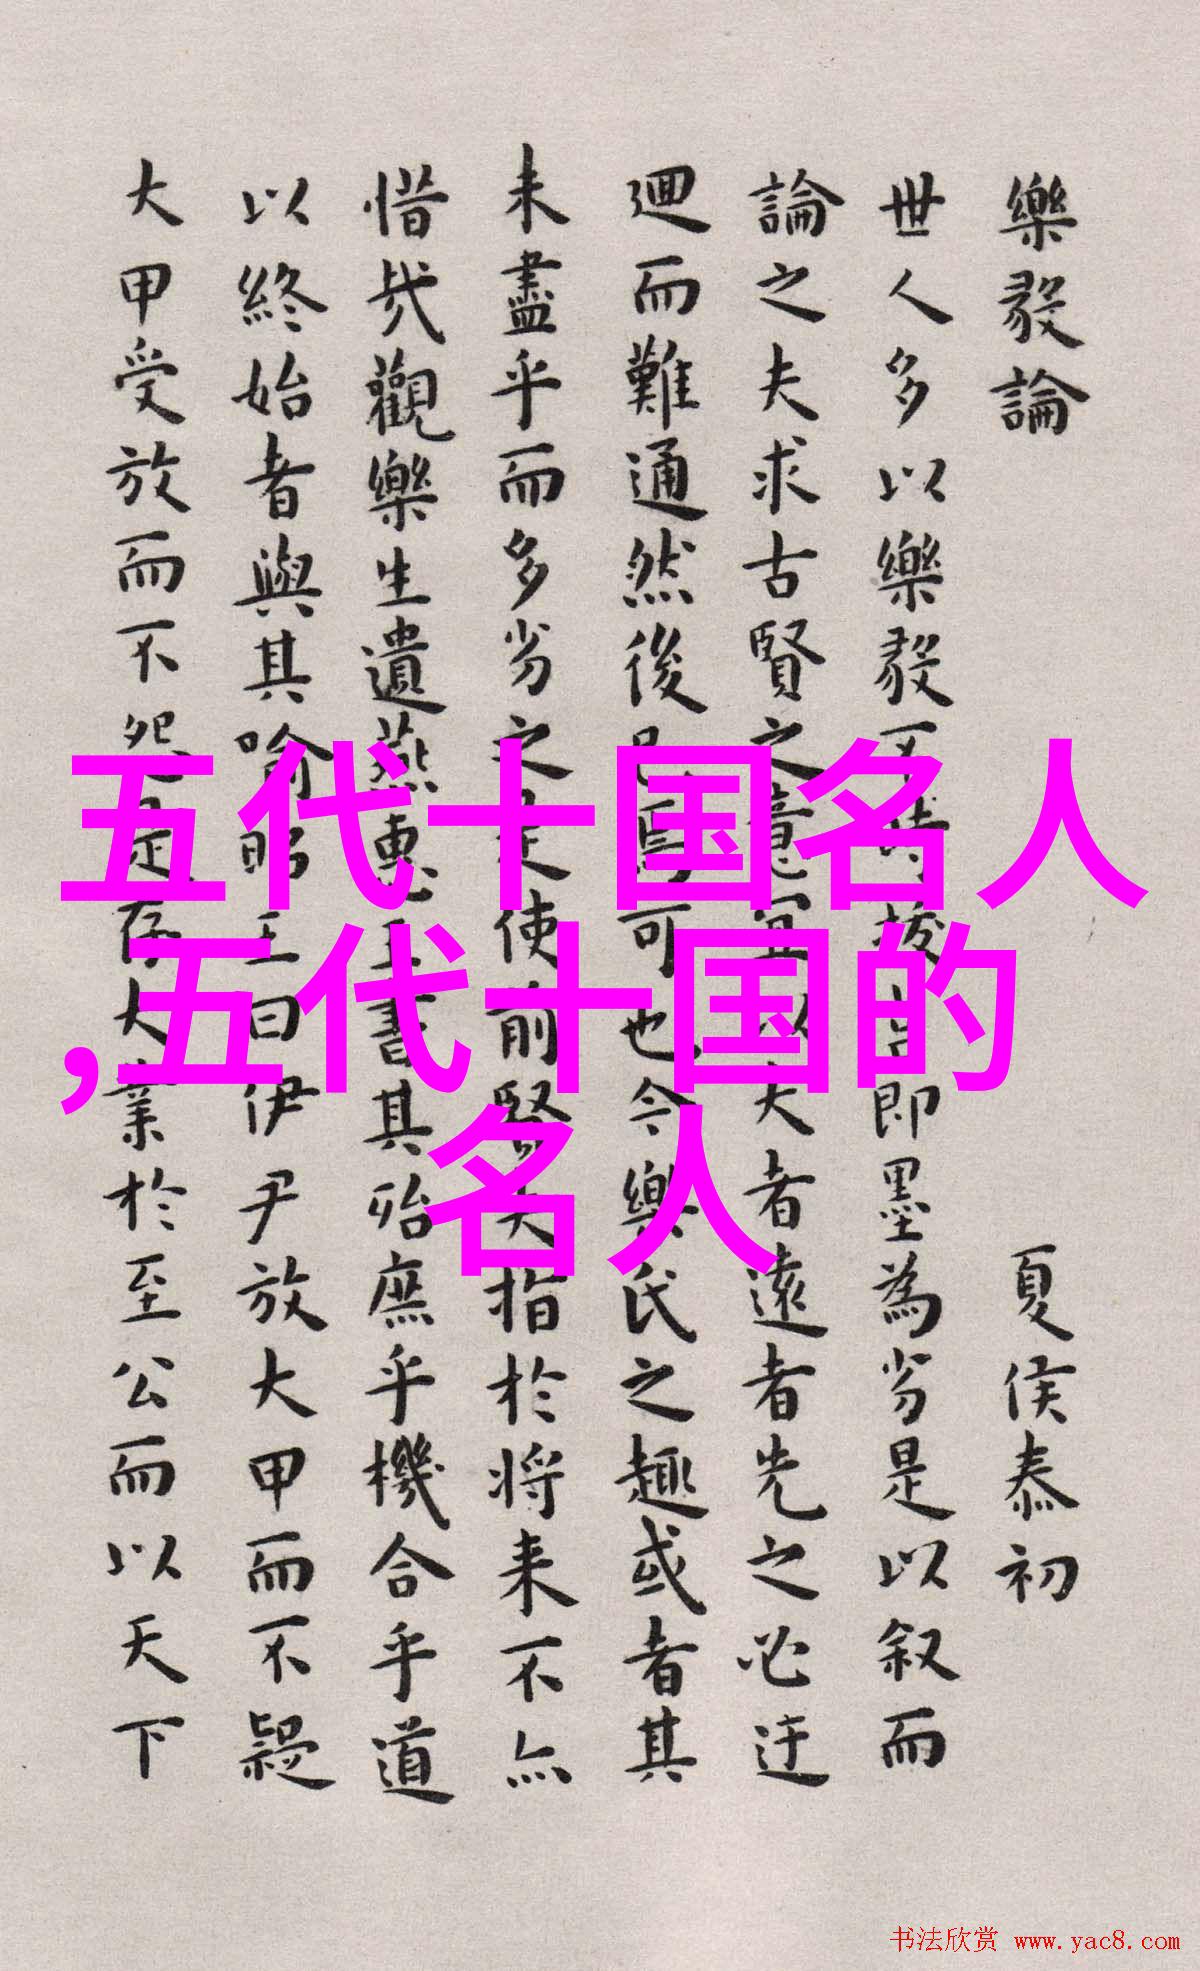 樂毅論 夏侯泰初
世人多以樂毅不時拔莒即墨為劣是以叙而
論之夫求古賢之意宜以大者遠者先之必迂
迴而難通然後已焉可也今樂氏之趣或者其
未盡乎而多劣之是使前賢失指於將来不亦
惜哉觀樂生遺燕惠王書其殆庶乎機合乎道
以終始者與其喻昭王曰伊尹放大甲而不疑
大甲受放而不怨是存大業於至公而以天下
五代十国名人
,五代十国的
名人
书法欣赏 www.yac8.com